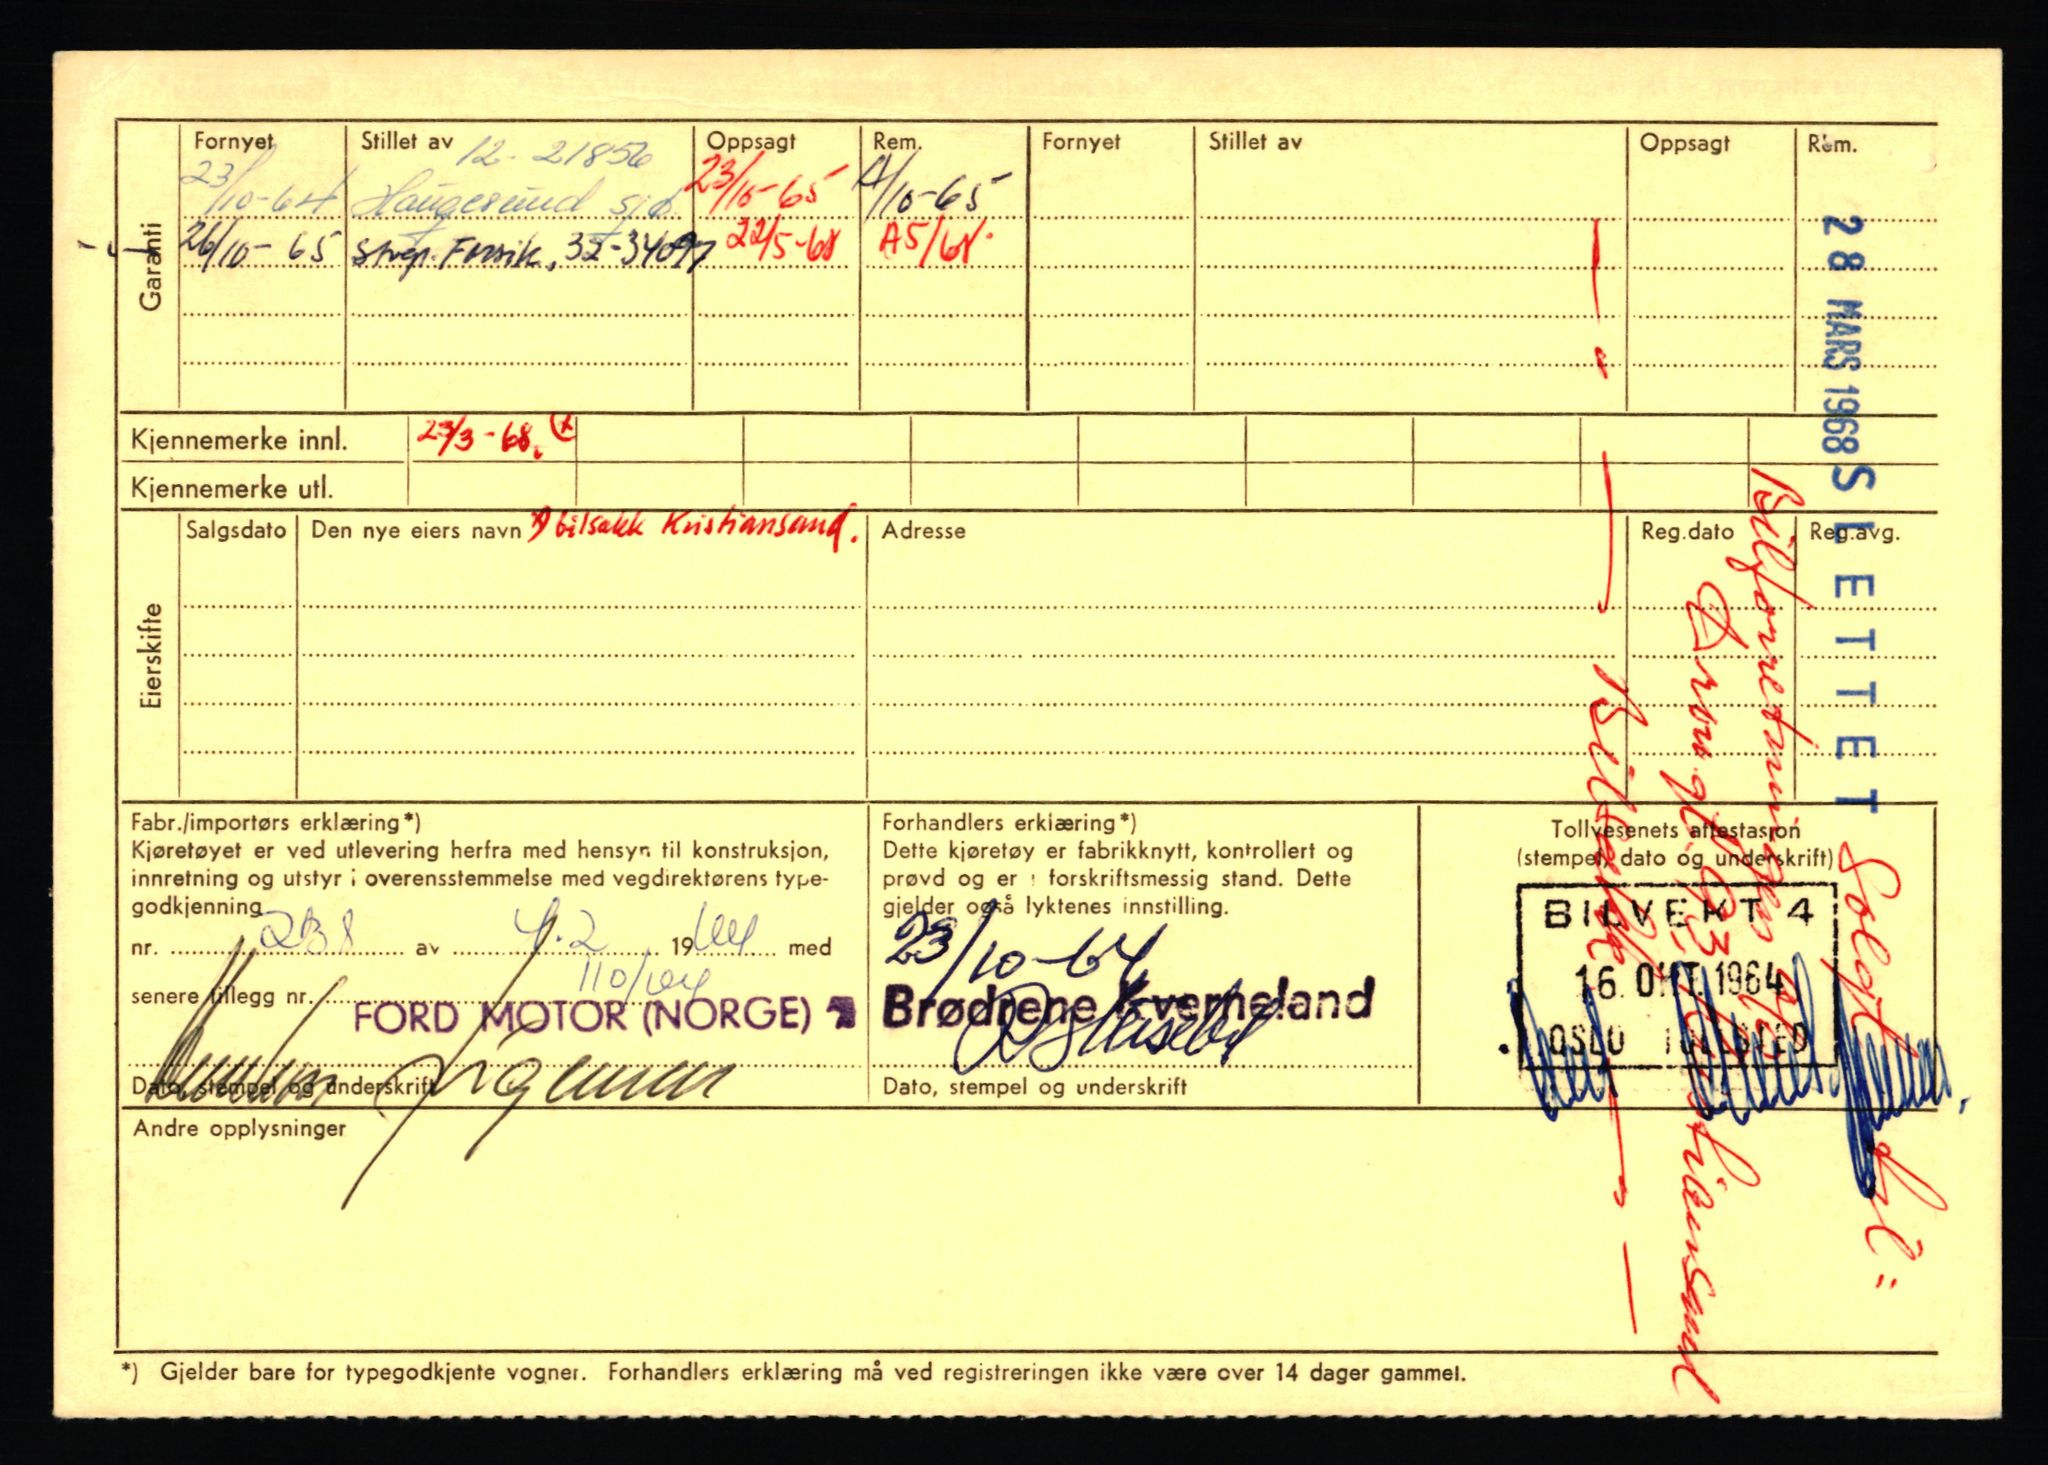 Fornyet Stillet av Oppsagt Rem. Fornyet Stillet av Oppsagt Rem.
12-21856
23/10-64 Haugesund sjø. 23/10-65 A/10-65
26/10-65 Forsik. 32-34097 22/5-68 A5/68.
Garanti
Kjennemerke innl. 23/3-68. x
Kjennemerke utl.
Salgsdato Den nye eiers navn x) bilsakk Kristiansand. Adresse Reg.dato Reg.avg.
Eierskifte
28 MARS 1968 SLETTET
Solgt til:
Bilforretningen
Kristiansand
— Bilsakk —
Fabr./importørs erklæring*)
Kjøretøyet er ved utlevering herfra med hensyn til konstruksjon,
innretning og utstyr i overensstemmelse med vegdirektørens type-
godkjenning
nr. 238 av 4.2 1964 med
senere tillegg nr. 110/64
FORD MOTOR (NORGE)
Dato, stempel og underskrift
Forhandlers erklæring*)
Dette kjøretøy er fabrikknytt, kontrollert og
prøvd og er i forskriftsmessig stand. Dette
gjelder også lyktenes innstilling.
23/10-64
Brødrene Kverneland
Dato, stempel og underskrift
Tollvesenets attestasjon
(stempel, dato og underskrift)
BILVEKT 4
16. OKT. 1964
OSLO TOLLSTED
Andre opplysninger
*) Gjelder bare for typegodkjente vogner. Forhandlers erklæring må ved registreringen ikke være over 14 dager gammel.